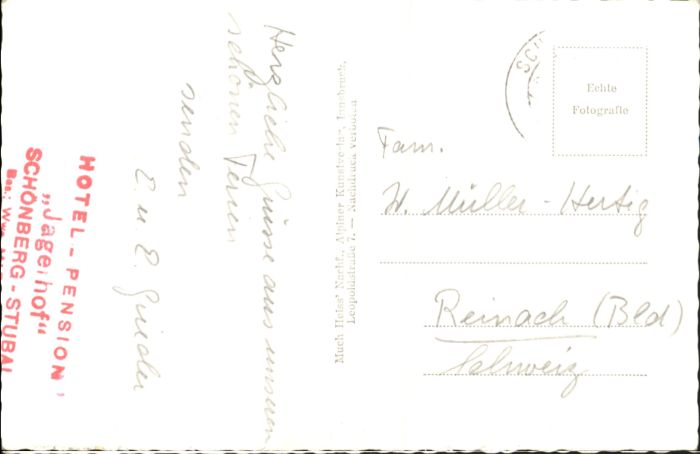 Herzliche Grüsse aus unseren
schönen Ferien
senden
E. u. E. Grieder
HOTEL - PENSION
„Jägerhof“
SCHÖNBERG - STUBAI
Bes.:
Much Heiss' Nachf., Alpiner Kunstverlag, Innsbruck,
Leopoldstraße 7. — Nachdruck verboten
SCH
Echte
Fotografie
Fam.
W. Müller-Hertig
Reinach (Bld)
Schweiz